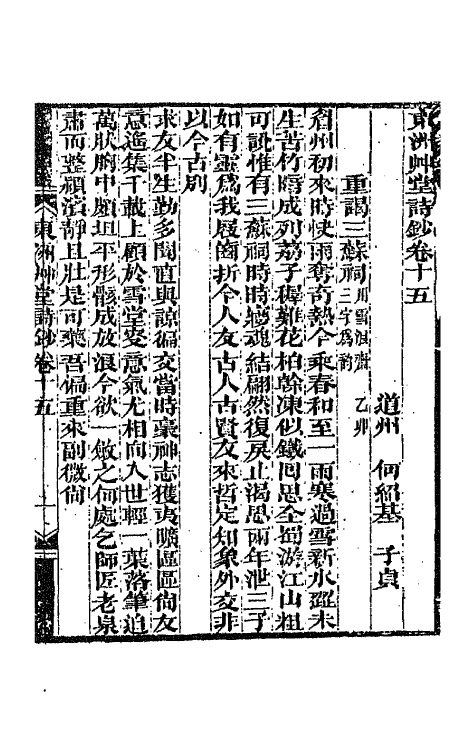 東洲艸堂詩鈔卷十五
道州 何紹基 子貞
重謁三蘇祠用雪浪齋三字爲韵 乙卯
眉州初來時快雨奪奇熱今乘春和至一雨寒過雪新水澀未
生苦竹隋成列荔子穉難花柏幹凍似鐵囘思全蜀游江山粗
可說惟有三蘇祠時時夢魂結翩然復戾止渴思兩年泄三子
如有靈爲我屐齒折今人友古人古賢友來哲定知象外交非
以今古別
求友半生勤多聞直與諒偏交當時豪神志獲夷曠區區尙友
意遙集千載上顧於雪堂叟意氣尤相向入世輕一葉落筆追
萬狀胸中頗坦平形骸成放浪今欲一斂之何處乞師匠老泉
肅而整潁濱靜且壯是可藥吾偏重來副微尙
東洲艸堂詩鈔卷十五 一